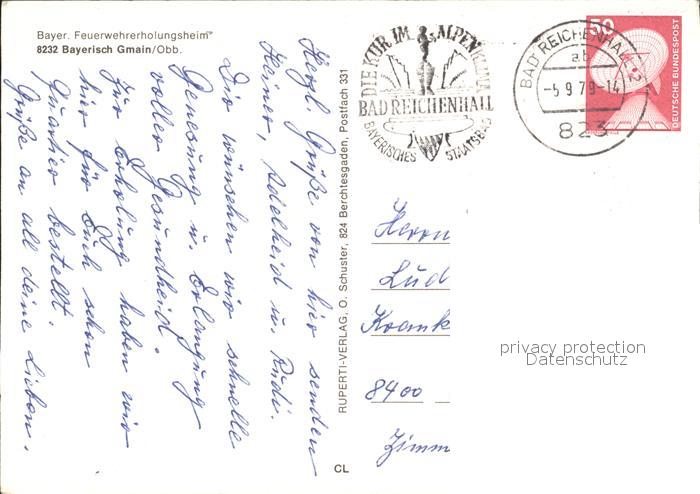 Bayer. Feuerwehrerholungsheim
8232 Bayerisch Gmain/Obb.
Herzl Grüße von hier senden
Heiner, Adelheid u. Rudi.
Dir wünschen wir schnelle
Genesung u. Erlangung
voller Gesundheid.
Zur Erholung haben wir
hier für Euch schon
Quartier bestellt.
Grüße an all deine Lieben.
RUPERTI-VERLAG, O. Schuster, 824 Berchtesgaden, Postfach 331
CL
DIE KUR IM ALPENKLIMA
BAD REICHENHALL
BAYERISCHES STAATSBAD
BAD REICHENHALL 2
ab
-5.9.79-14
823
50
DEUTSCHE BUNDESPOST
Herrn
Lud
Krank
8400
Zimm
privacy protection
Datenschutz